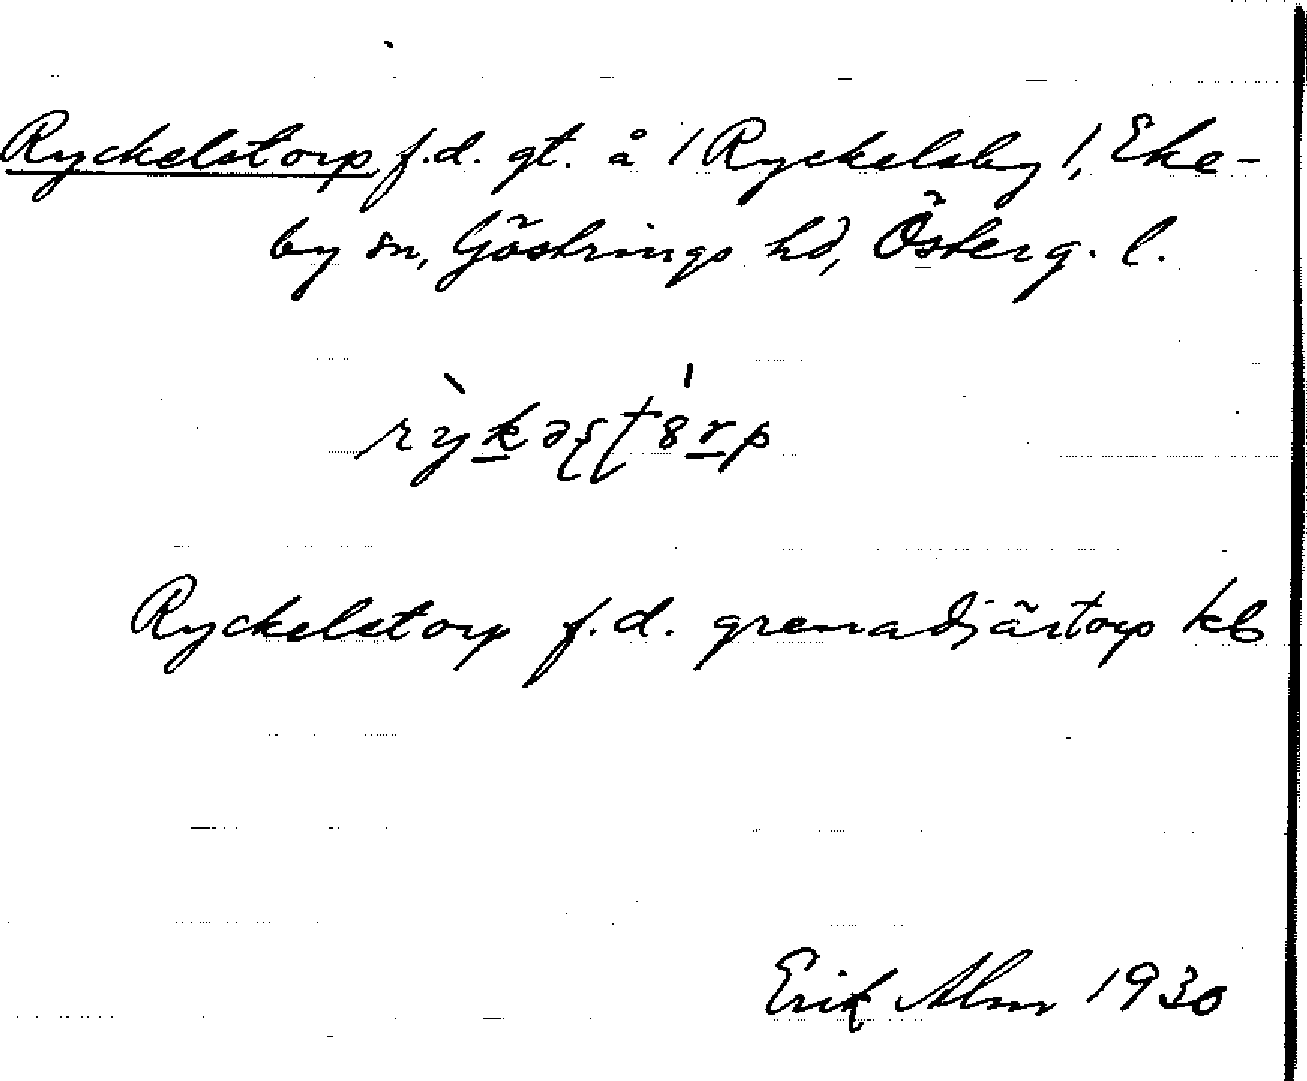 Ryckelstorp f.d. gt. å /Ryckelsby/, Eke-
by sn, Göstrings hd, Österg. l.
Ryckelstorp f.d. grenadjärtorp kb
Erik Alm 1930